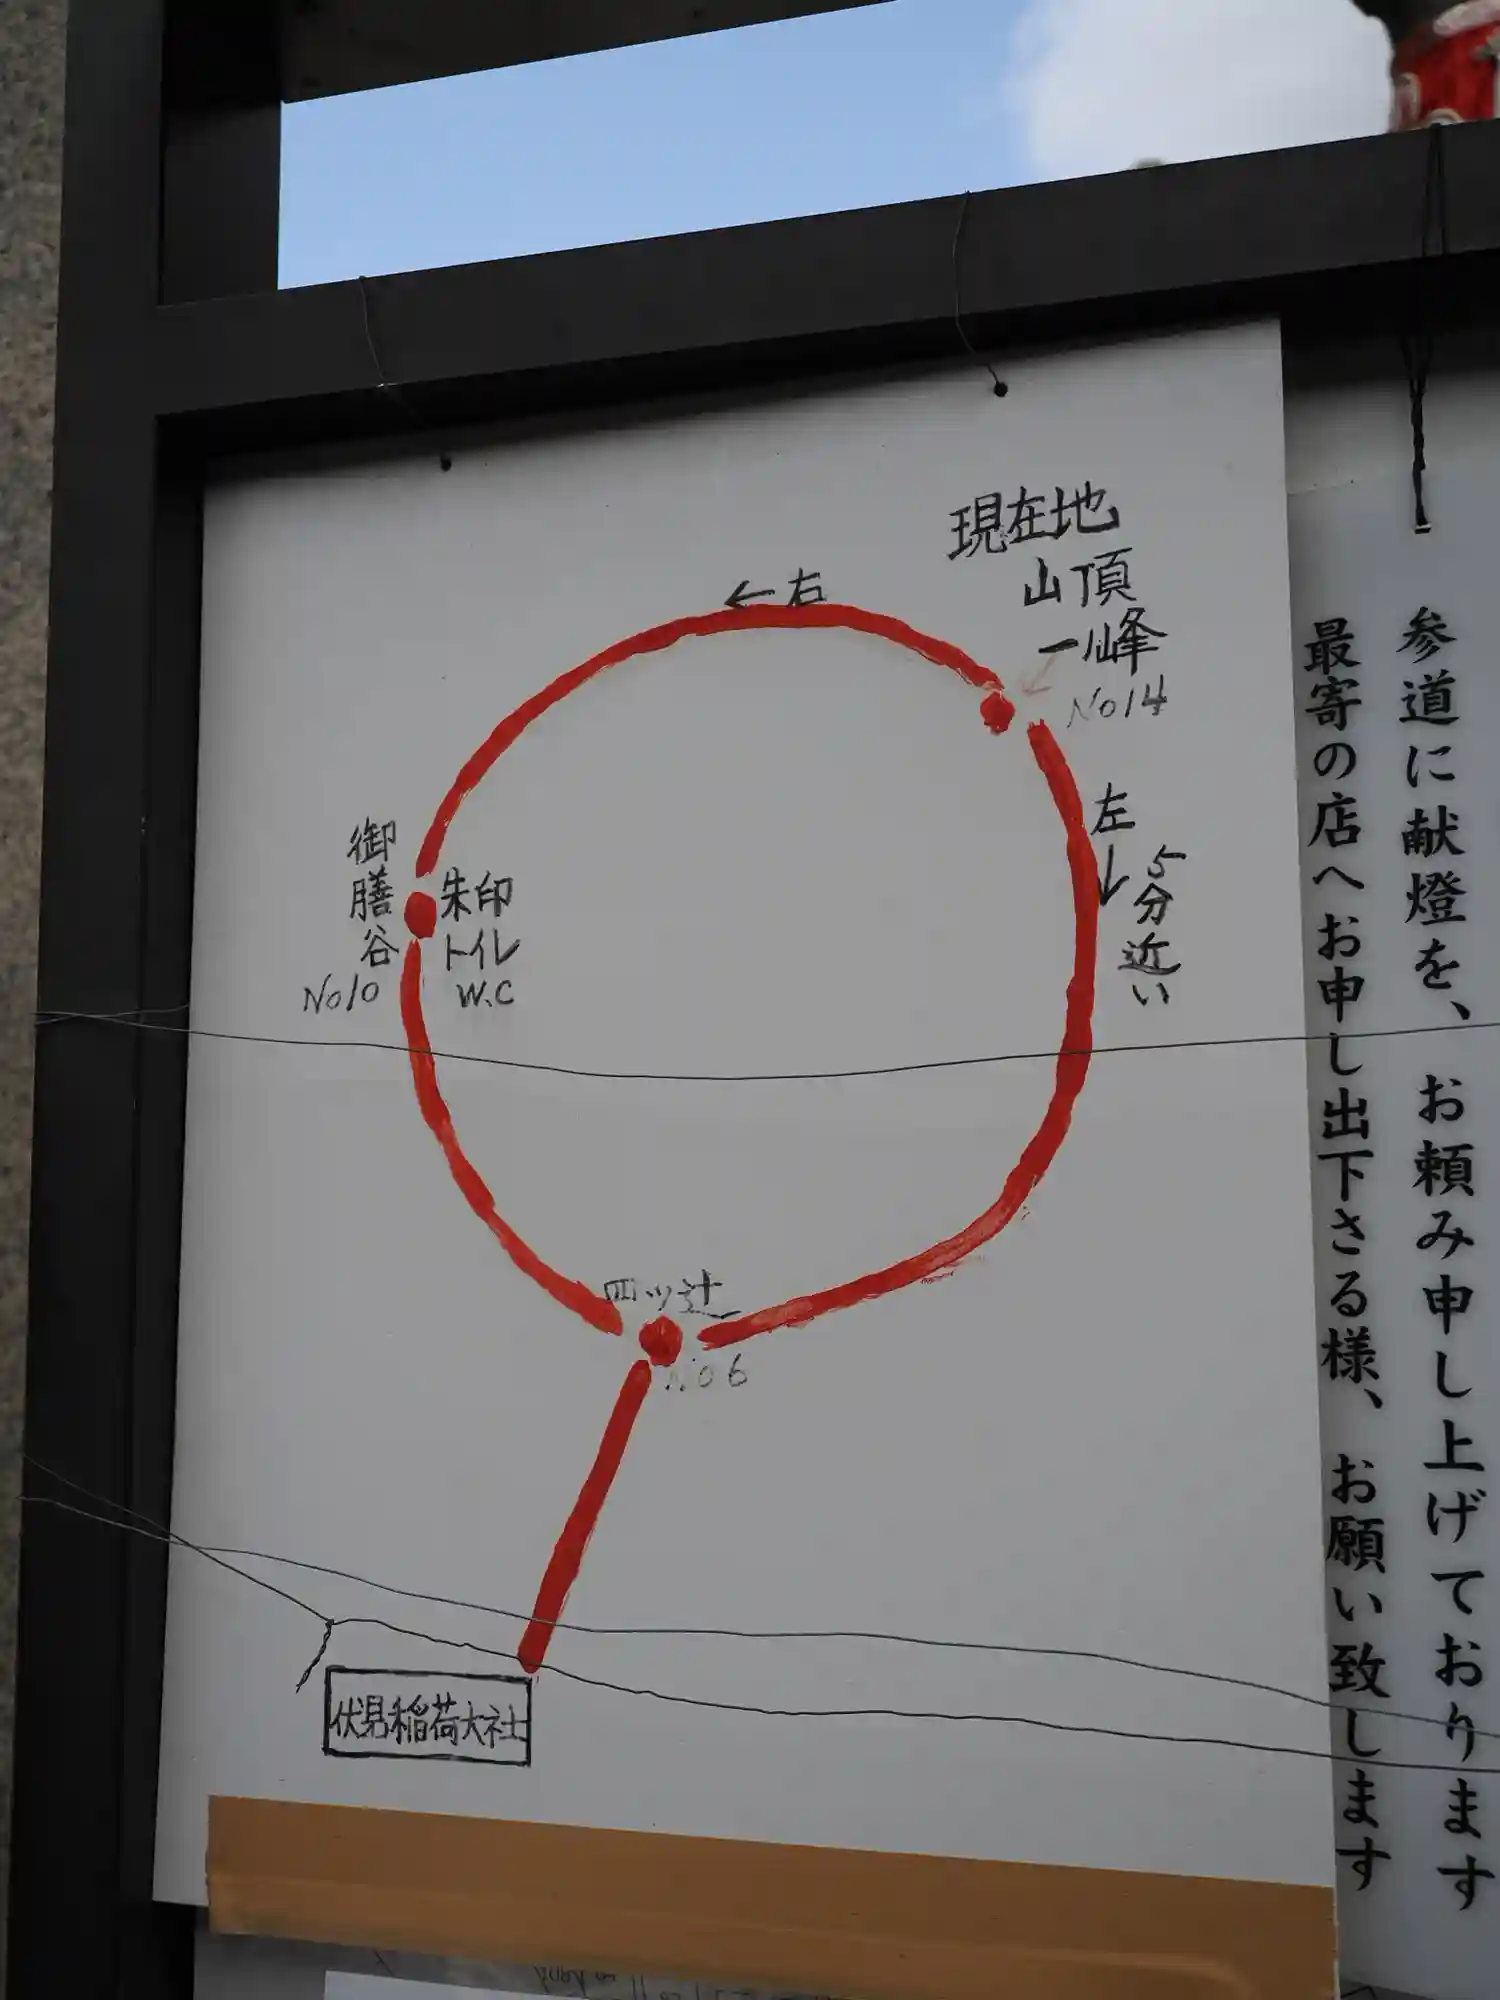 現在地
山頂
一ノ峰
No14
←右
左
↓
5分近い
御膳谷
No10
朱印
トイレ
W.C
四ツ辻
No6
伏見稲荷大社
参道に献燈を、お頼み申し上げております
最寄の店へお申し出下さる様、お願い致します